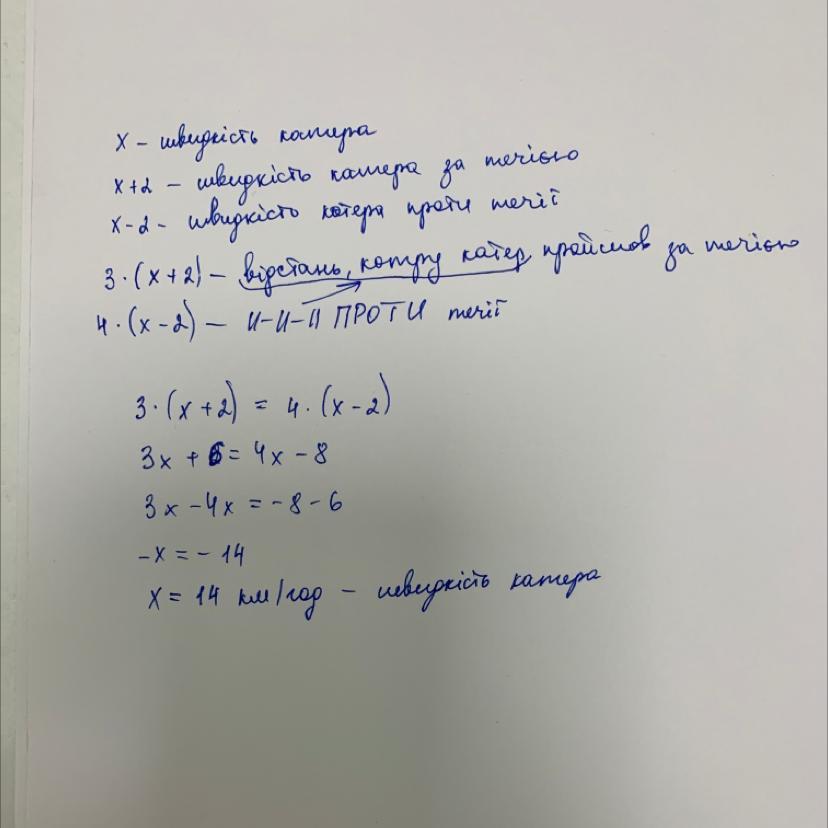 x – швидкість катера
x+2 – швидкість катера за течією
x-2 – швидкість котера проти течії
3·(x+2) – відстань, котру катер пройшов за течією
4·(x-2) – и-и-и ПРОТИ течії
3·(x+2) = 4·(x-2)
3x + 6 = 4x - 8
3x - 4x = -8 - 6
-x = -14
x = 14 км/год – швидкість катера